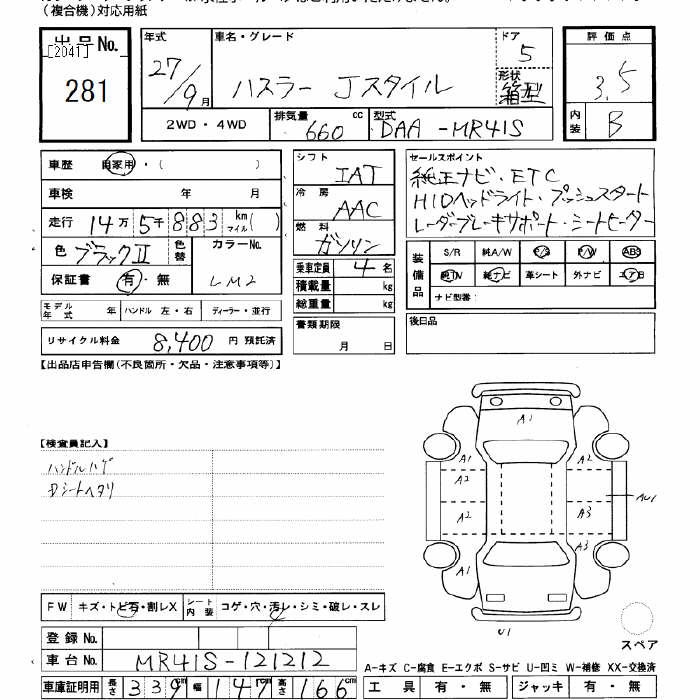 (複合機)対応用紙
出品No.
[2041]
281
年式 車名・グレード ドア
27/9月 ハスラー Jスタイル 5
形状
箱型
2WD・4WD 排気量 660 cc 型式 DAA-MR41S
評価点
3.5
内装 B
車歴 自家用・( )
車検 年 月
走行 14万5千883 km マイル( )
色 ブラックⅡ 色替 カラーNo.
保証書 有・無 LM2
モデル年式 年 ハンドル 左・右 ディーラー・並行
リサイクル料金 8,400 円 預託済
シフト IAT
冷房 AAC
燃料 ガソリン
乗車定員 4 名
積載量 kg
総重量 kg
書類期限
月 日
セールスポイント
純正ナビ・ETC
HIDヘッドライト・プッシュスタート
レーダーブレーキサポート・シートヒーター
装備品 S/R 純A/W P/S P/W ABS
純TV 純ナビ 革シート 外ナビ エアB
ナビ型番:
後日品
【出品店申告欄(不良箇所・欠品・注意事項等)】
【検査員記入】
ハンドルハゲ
Dシートヘタリ
A1
A1 A2
A2
A2 A3
A1 A3
AU1
U1
スペア
FW キズ・トビ石・割レX シート内装 コゲ・穴・汚レ・シミ・破レ・スレ
登録No.
車台No. MR41S-121212
車庫証明用 長さ 339cm 幅 147cm 高さ 166cm
A-キズ C-腐食 E-エクボ S-サビ U-凹ミ W-補修 XX-交換済
工具 有・無 ジャッキ 有・無